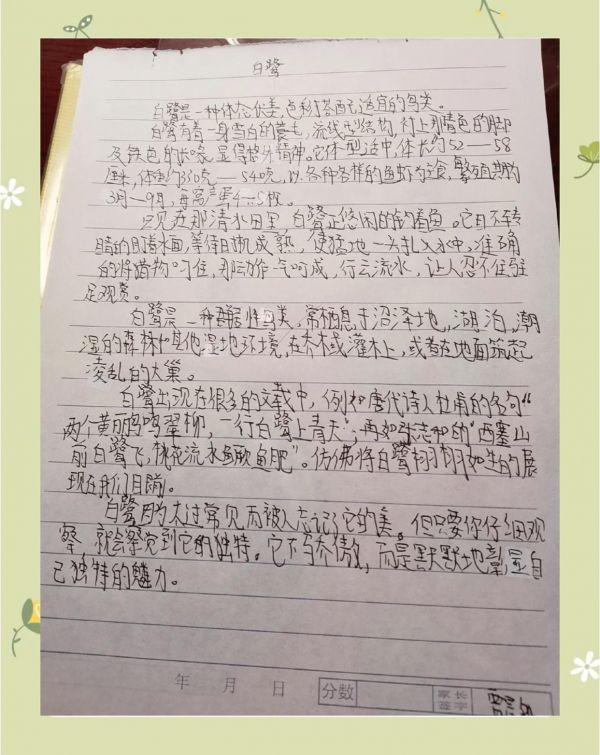 白鹭
白鹭是一种体态优美,色彩搭配适宜的鸟类。
白鹭有着一身雪白的蓑毛,流线型结构,衬上那青色的脚
及铁色的长喙,显得格外精神。它体型适中,体长约52——58
厘米,体重约330克——540克,以各种各样的鱼虾为主食,繁殖期为
3月—9月,每窝产蛋4—5枚。
只见在那清水田里,白鹭正悠闲的钓着鱼。它目不转
睛的盯着水面,等待时机成熟,便猛地一头扎入水中,准确
的将猎物叼住,那动作一气呵成,行云流水,让人忍不住驻
足观赏。
白鹭是一种群居性鸟类,常栖息于沼泽地,湖泊,潮
湿的森林和其他湿地环境,在乔木或灌木上,或者在地面筑起
凌乱的大巢。
白鹭出现在很多的文载中,例如唐代诗人杜甫的名句“
两个黄鹂鸣翠柳,一行白鹭上青天”,再如张志和的“西塞山
前白鹭飞,桃花流水鳜鱼肥”。仿佛将白鹭栩栩如生的展
现在我们目前。
白鹭因为太过常见而被人忘记了它的美。但只要你仔细观
察,就会察觉到它的独特。它不与乔傲,而是默默地彰显自
己独特的魅力。
年 月 日 分数 家长
签字